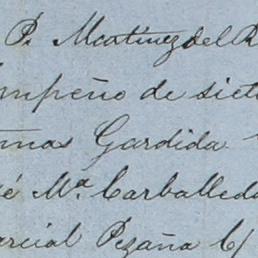 P. Martinez del R
mpeño de siet
mas Gardida
é Mª. Carballeda
arcial Pezaña C/